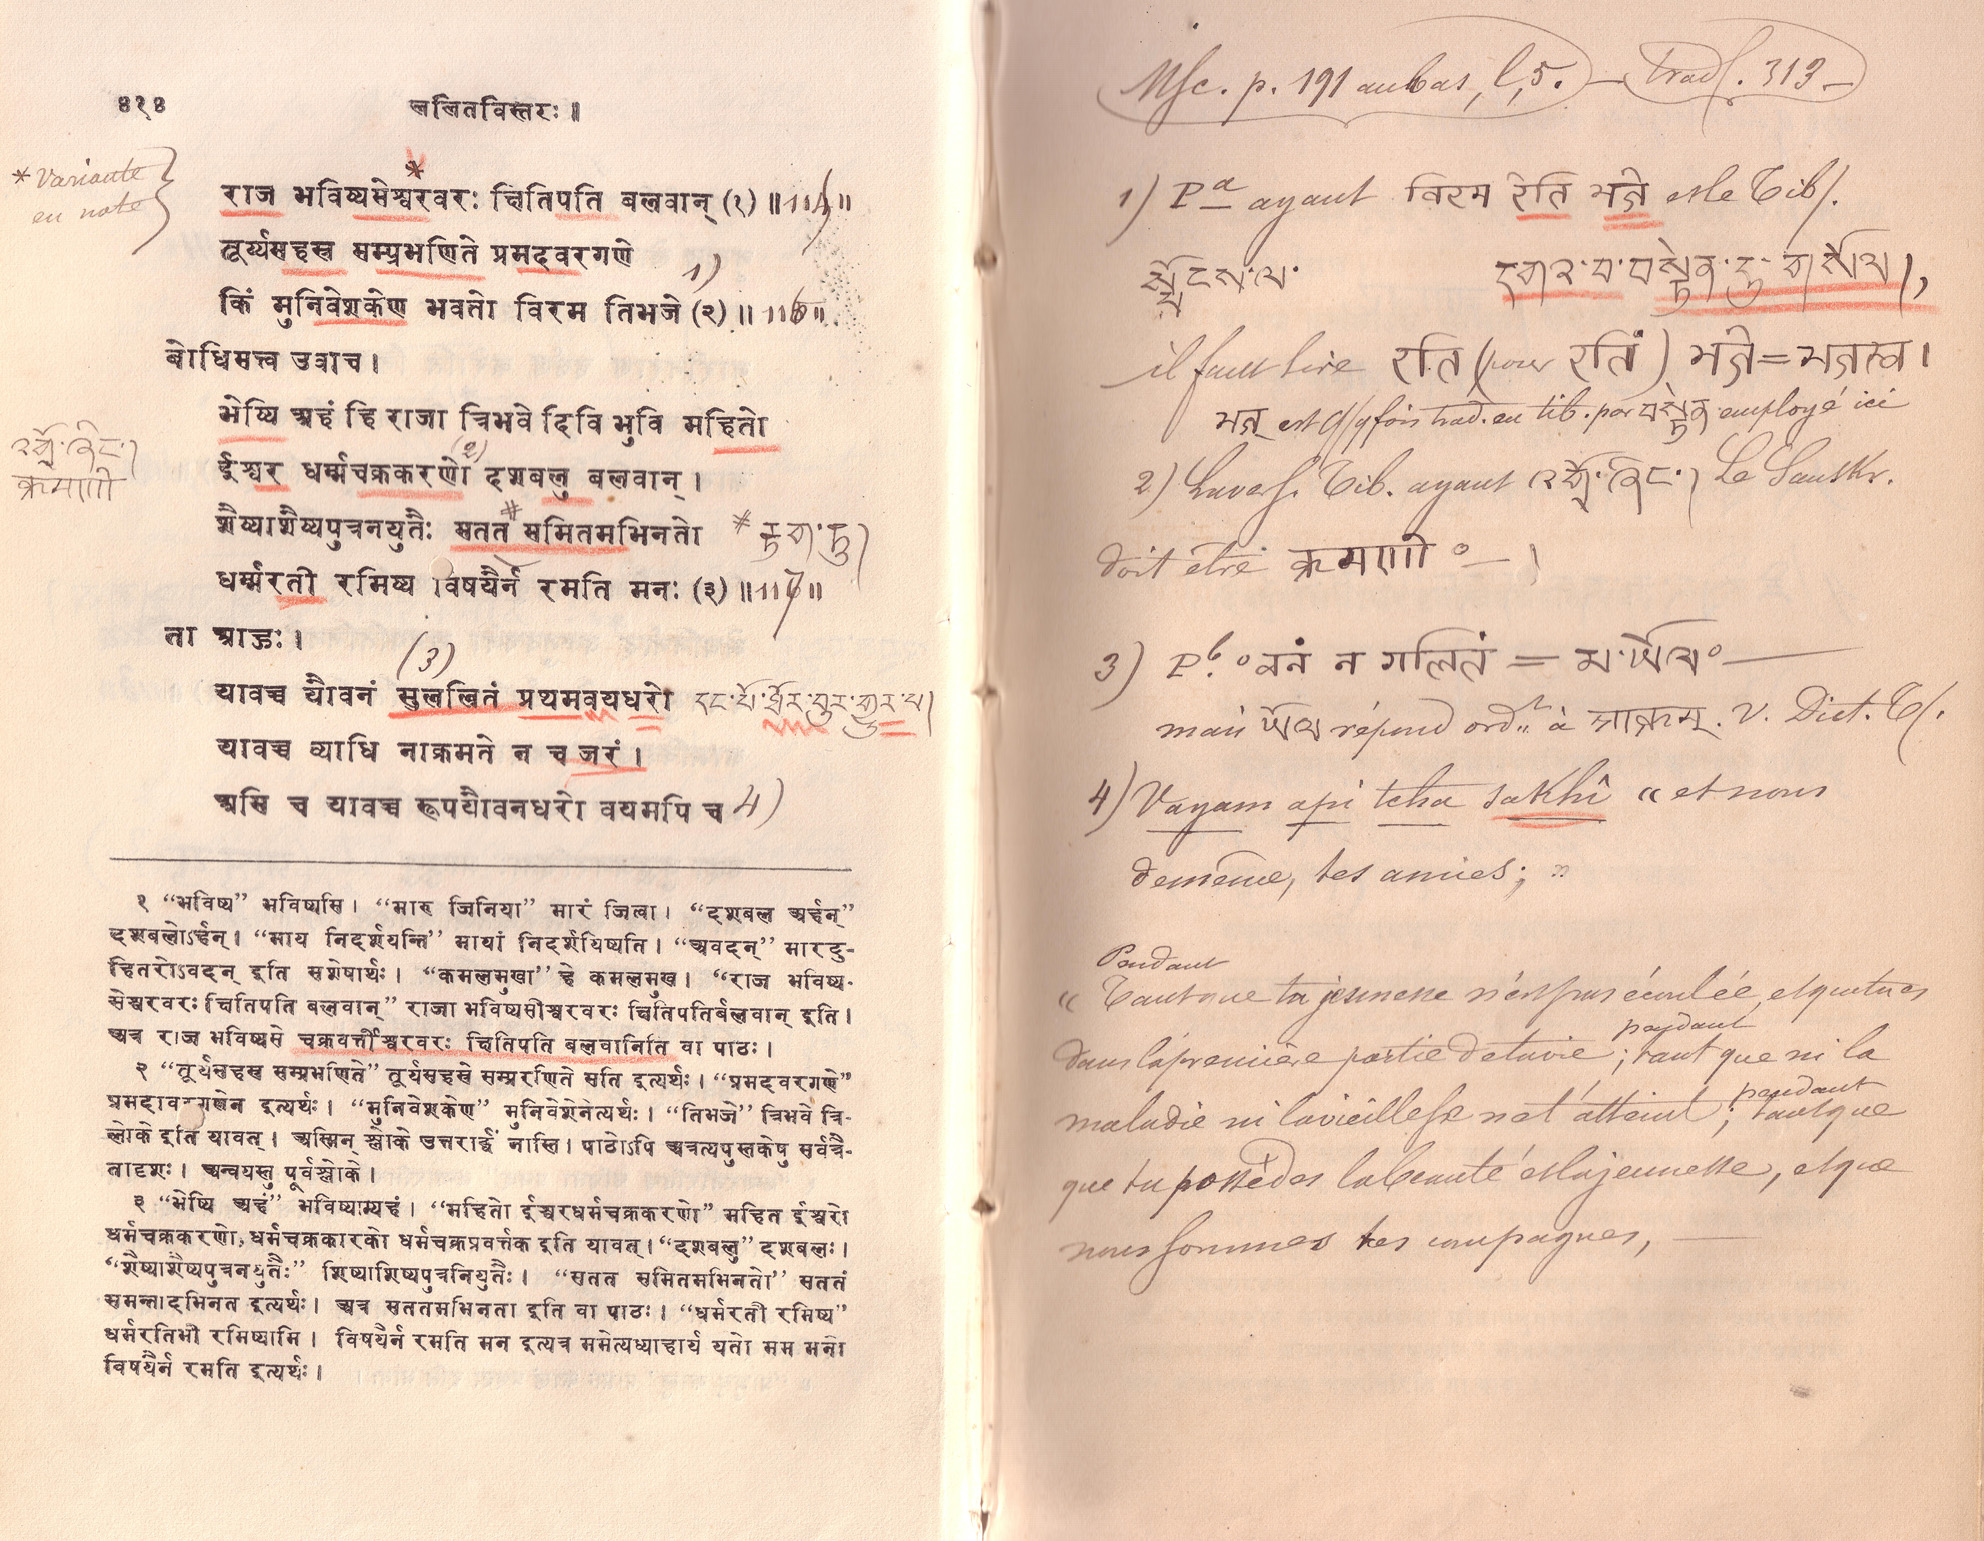 ४१४
ललितविस्तरः ॥
* Variante
en note
राज भविष्यसेश्वरवरः क्षितिपति बलवान् (१) ॥ 115 ॥
तूर्य्यसहस्र सम्प्रभणिते प्रमदवरगणे
1)
किं मुनिवेशकेण भवतो विरम तिभजे (२) ॥ 116 ॥
बोधिसत्त्व उवाच ।
भेष्यि अहं हि राजा त्रिभवे दिवि भुवि महितो
(२)
ईश्वर धर्म्मचक्रकरणो दशबलु बलवान् ।
क्रमाणो
शैष्याशैष्यपुत्रनयुतैः सतत समितमभिनतो * རྟག་ཏུ
धर्म्मरती रमिष्य विषयैर्न रमति मनः (३) ॥ 117 ॥
ता आहुः ।
(3)
यावच्च यौवनं सुललितं प्रथमवयधरो དང་པོ་
यावच्च व्याधि नाक्रमते न च जरं ।
असि च यावच्च रूपयौवनधरो वयमपि च 4)
१ “भविष्य” भविष्यसि । “मारु जिनिया” मारं जित्वा । “दशबल अर्हन्”
दशबलोऽर्हन् । “माय निदर्शयन्ति” मायां निदर्शयिष्यति । “अवदन्” मारदु-
हितरोऽवदन् इति सशेषार्थः । “कमलमुखा” हे कमलमुख । “राज भविष्य-
सेश्वरवरः क्षितिपति बलवान्” राजा भविष्यसीश्वरवरः क्षितिपतिर्बलवान् इति ।
अत्र राज भविष्यसे चक्रवर्त्तीश्वरवरः क्षितिपति बलवानिति वा पाठः ।
२ “तूर्यसहस्र सम्प्रभणिते” तूर्यसहस्रे सम्प्ररणिते सति इत्यर्थः । “प्रमदवरगणे”
प्रमदावरगणेन इत्यर्थः । “मुनिवेशकेण” मुनिवेशेनेत्यर्थः । “तिभजे” त्रिभवे त्रि-
लोके इति यावत् । अस्मिन् श्लोके उत्तरार्द्धं नास्ति । पाठोऽपि अत्रत्यपुस्तकेषु सर्वत्रै-
तादृशः । अन्वयस्तु पूर्वश्लोके ।
३ “भेष्यि अहं” भविष्याम्यहं । “महितो ईश्वरधर्मचक्रकरणो” महित ईश्वरो
धर्मचक्रकरणो, धर्मचक्रकारको धर्मचक्रप्रवर्त्तक इति यावत् । “दशबलु” दशबलः ।
“शैष्याशैष्यपुत्रनयुतैः” शिष्याशिष्यपुत्रनियुतैः । “सतत समितमभिनतो” सततं
समन्तादभिनत इत्यर्थः । अत्र सततमभिनता इति वा पाठः । “धर्मरती रमिष्य”
धर्मरतिभी रमिष्यामि । विषयैर्न रमति मन इत्यत्र ममेत्यध्याहार्य यतो मम मनो
विषयैर्न रमति इत्यर्थः ।
Msc. p. 191 au bas, l. 5. — trad. 313 —
1) Pª ayant विरम रेति भजे et le Tib.
སྤྱོངས་ལ་ དགར་བ་བསྟེན་དུ་གསོལ།,
il faut lire रति (pour रतिं) भजे = भजस्व ।
भज् est q/qfois trad. en tib. par བསྟེན employé ici
2) La vers. Tib. ayant འགྲོ་ཞིང་། Le Sanskr.
doit être क्रमाणो ° —
3) P.b ° वनं न गलितं = མ་ཡོལ° —
mais ཡོལ répond ordt à आक्रम्. V. Dict. T.
4) Vayam api tcha sakhî « et nous
de même, tes amies; »
Pendant
« Tant que ta jeunesse n'est pas écoulée, et que tu es
pendant
dans la première partie de ta vie; tant que ni la
pendant
maladie ni la vieillesse ne t'atteint; tant que
que tu possèdes la beauté et la jeunesse, et que
nous sommes tes compagnes, —